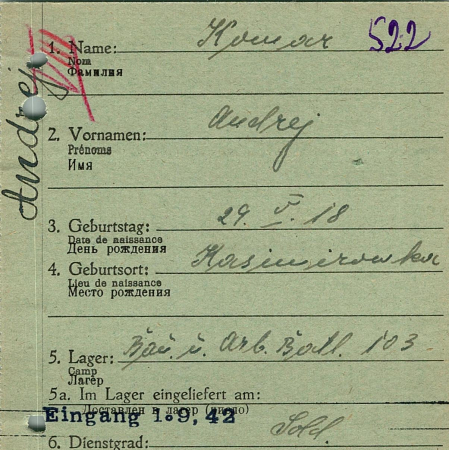 Andrej
1. Name: Komar 522
Nom
Фамилия
2. Vornamen: Andrej
Prénoms
Имя
3. Geburtstag: 29. V. 18
Date de naissance
День рождения
4. Geburtsort: Kasimirowka
Lieu de naissance
Место рождения
5. Lager: Bau. u. Arb. Batl. 103
Camp
Лагерь
5a. Im Lager eingeliefert am:
Доставлен в лагерь (число)
Eingang 1.9.42
6. Dienstgrad: Sold.